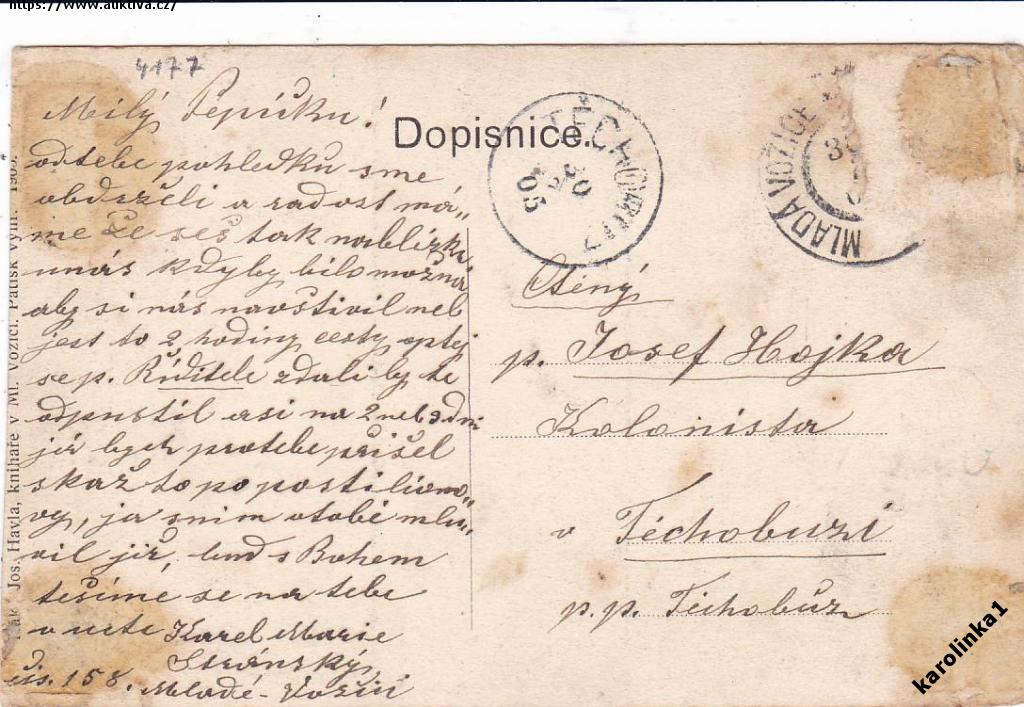 https://www.auktiva.cz/
4177
Milý Pepíčku!
od tebe pohledku sme
obdrželi a radost má„
me že seš tak nablízku
unás kdyby bilo možná
aby si nás navštivil neb
jest to 2 hodiny cesty optej
se p. Řiditele zdali by te
odpustil asi na 2 neb 3 dni
já bych protebe přišel
skaž to po postiliono„
vy, ja snim otobě mlu„
vil již, buď s Bohem
tešíme se na tebe
v ucte Karel Marie
Stránský
čís. 158. Mladé-Vožici
Dopisnice.
TĚCHOBUZ
30
05
MLADÁ VOŽICE
3
Ctěný
p. Josef Hojka
Kolonista
v Těchobuzi
p. p. Těchobuz
Jos. Havla, knihaře v Ml. Vožici. Patisk vyhr. 190
karolinka1